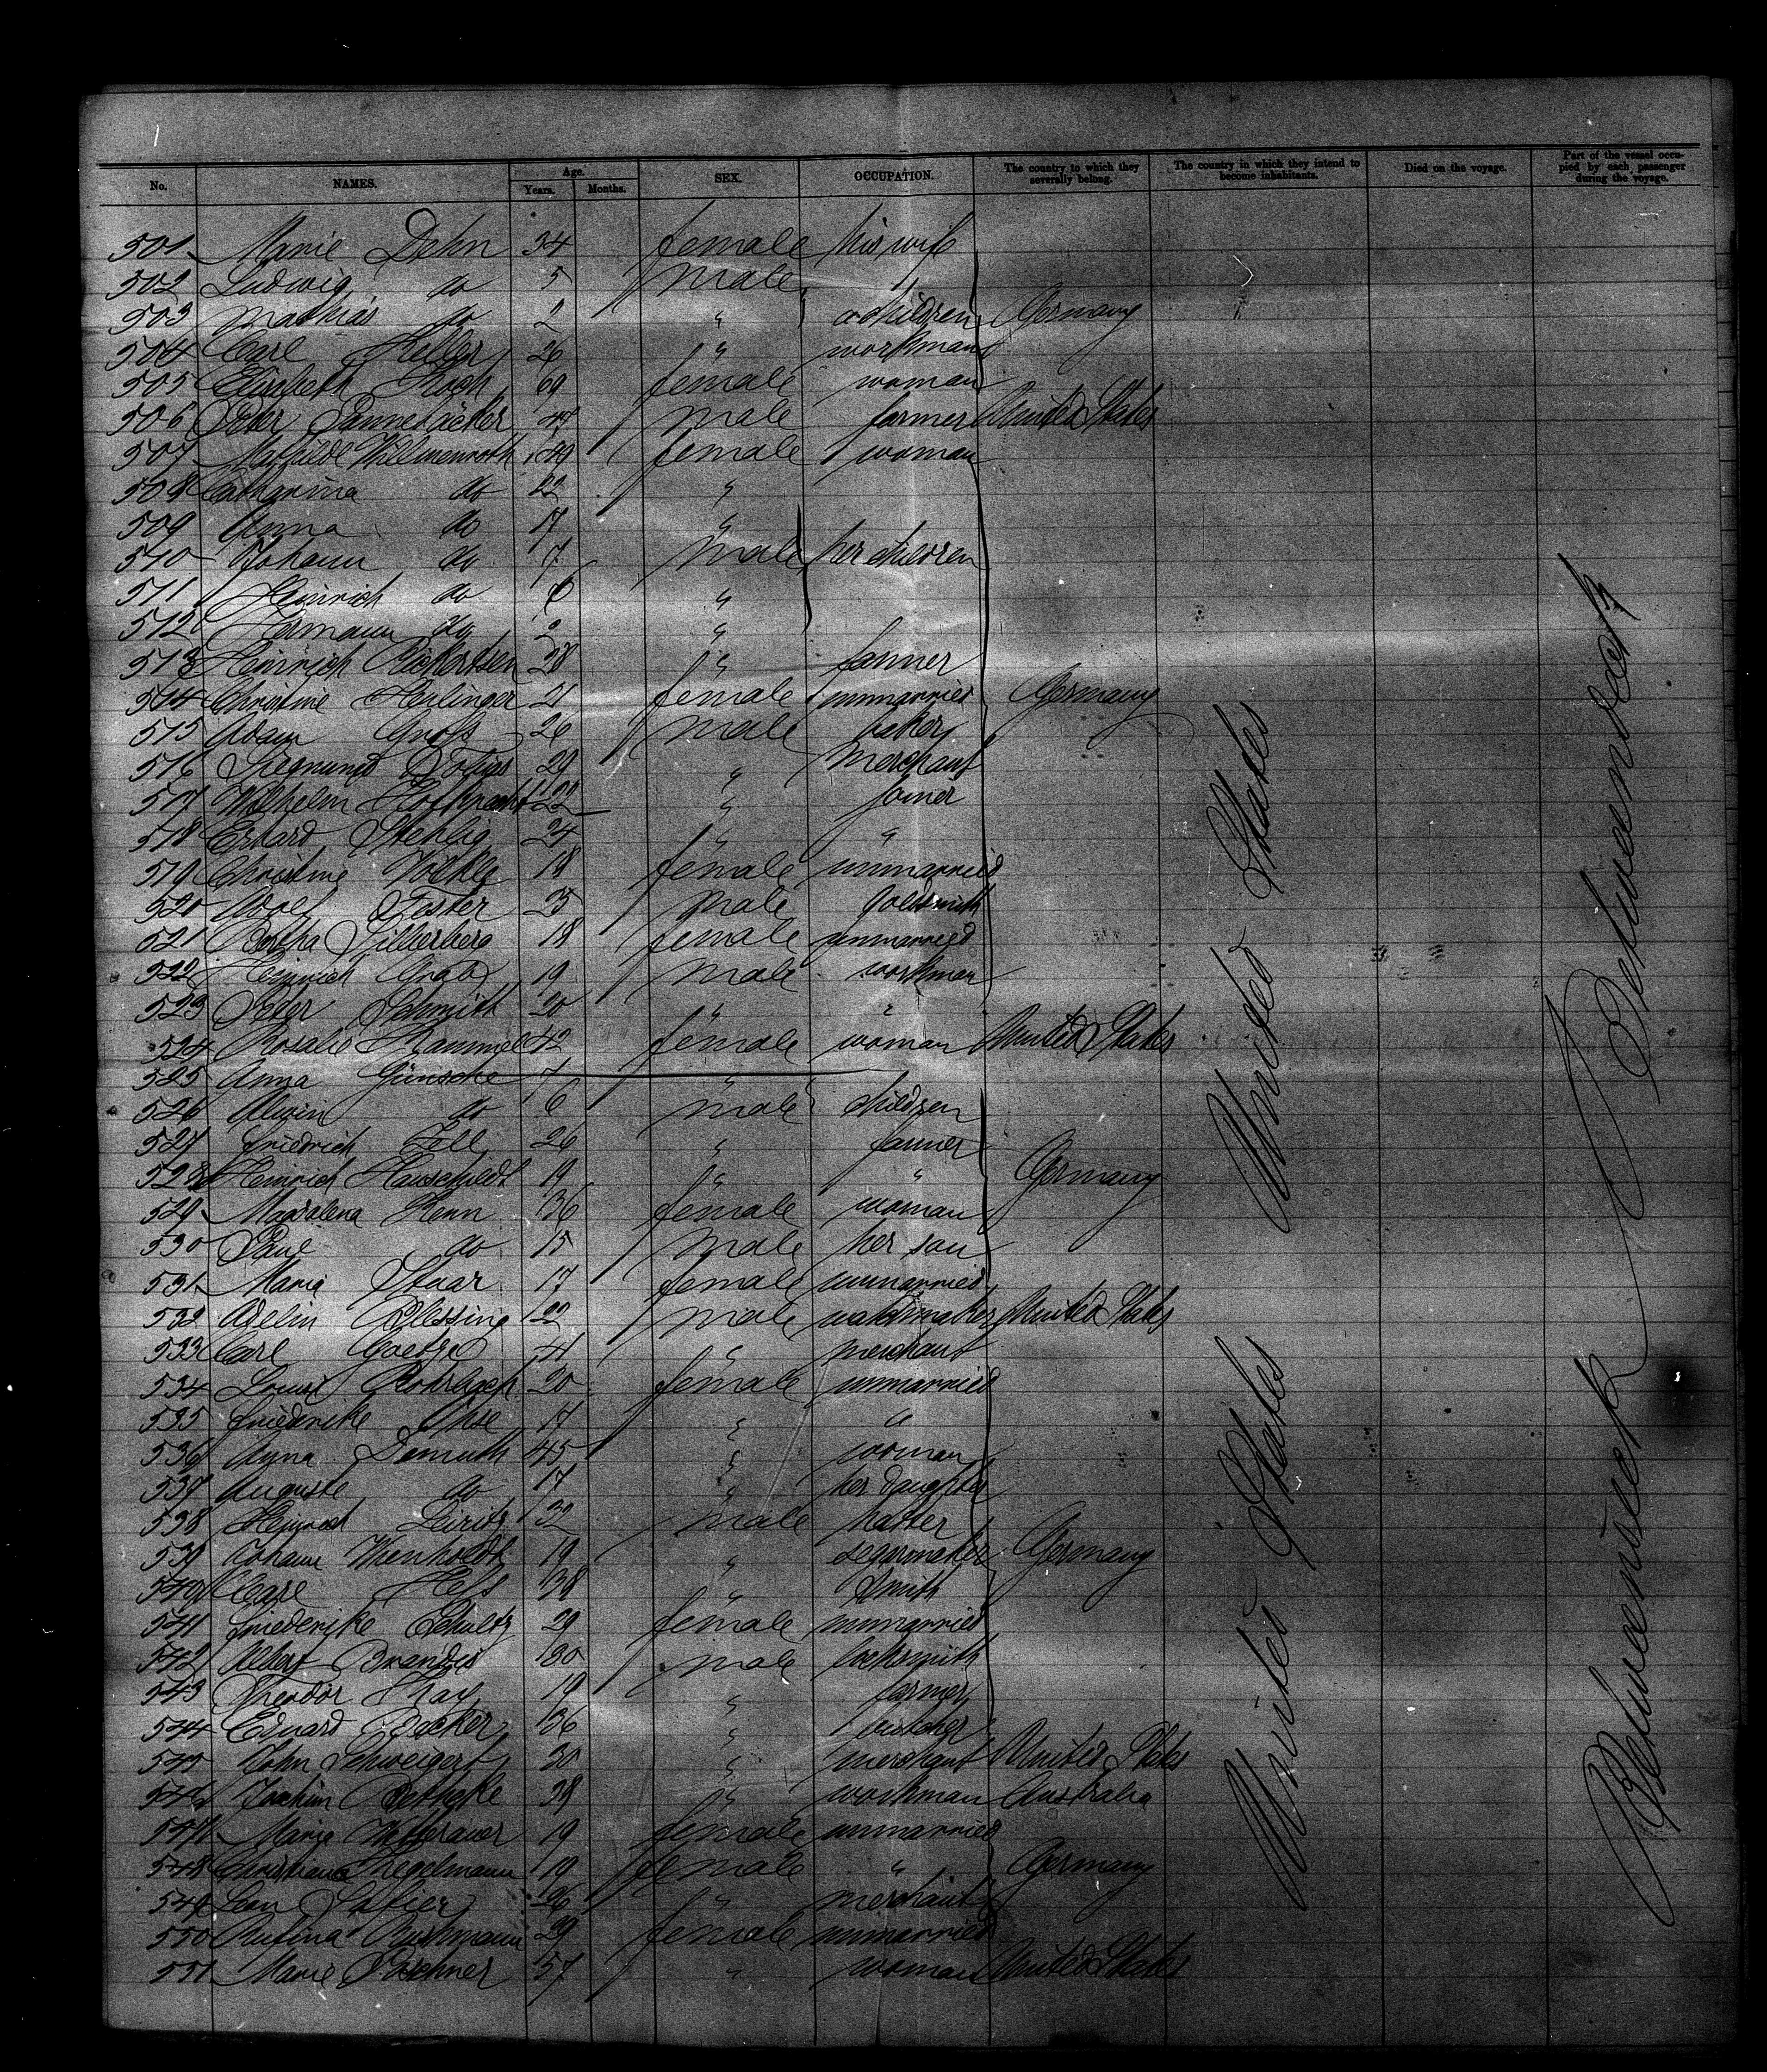 No. NAMES. Age. Years. Months. SEX. OCCUPATION. The country to which they severally belong. The country in which they intend to become inhabitants. Died on the voyage. Part of the vessel occupied by each passenger during the voyage.
501 Marie Dehn 34 female his wife
502 Ludwig do 5 male
503 Mathias do 2 " children Germany
504 Carl Keller 26 " workman
505 Elisabeth Koch 69 female woman
506 Peter 47 male farmer United States
507 Mathilde Willmenroth 49 female woman
508 Catharina do 22 "
509 Anna do 17 "
510 Johann do 7 male her children
511 Heinrich do 6 "
512 Hermann do 2 "
513 Heinrich Rickertsen 28 " farmer
514 Christine Herlinger 21 female unmarried Germany
515 Adam Gross 26 male baker
516 Siegmund 29 " merchant
517 Wilhelm 22 " joiner
518 Erhard Stehlig 24 " "
519 Christine 18 female unmarried
520 Adolf Fester 25 male goldsmith
521 Bertha Silberberg 18 female unmarried
522 Heinrich Grab 19 male workman
523 Peter Schmith 20 " "
524 Rosalie Rammel 42 female woman United States
525 Anna Günsche 7 "
526 Alwin do 6 male children
527 Friedrich Fell 26 " farmer
528 Heinrich Hauschildt 19 " " Germany
529 Magdalena Kenn 36 female woman
530 Paul do 15 male her son
531 Maria Staar 17 female unmarried
532 Adelin Blessing 22 male watchmaker United States
533 Carl Goetze 41 " merchant
534 Louise Rohrbach 20 female unmarried
535 Friederike Ohse 17 " "
536 Anna Demuth 45 " woman
537 Auguste do 17 " her daughter
538 Heinrich 32 male hatter
539 Johann Wienholdt 19 " segarmaker Germany
540 Carl Hess 38 " smith
541 Friederike Schultz 29 female unmarried
542 Albert Brandes 30 male locksmith
543 Theodor 19 " farmer
544 Eduard Becker 36 " butcher
545 John Schweigert 30 " merchant United States
546 Jochim Bethcke 38 " workman Australia
547 Marie 19 female unmarried
548 Christiane Kregelmann 19 female " Germany
549 Leon Safier 26 " merchant
550 Rufina Ruhmann 29 female unmarried
551 Marie Poschner 57 " woman United States
United States
United States
Betweendeck
Betweendeck